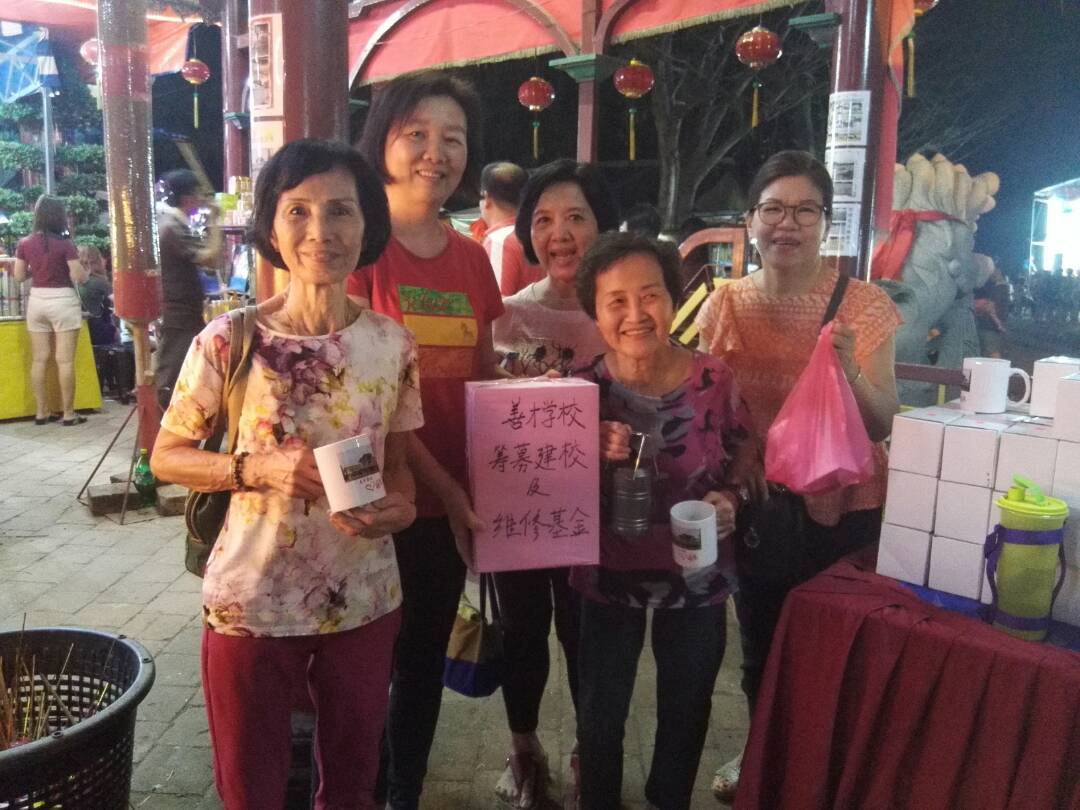 善才学校
筹募建校
及
维修基金